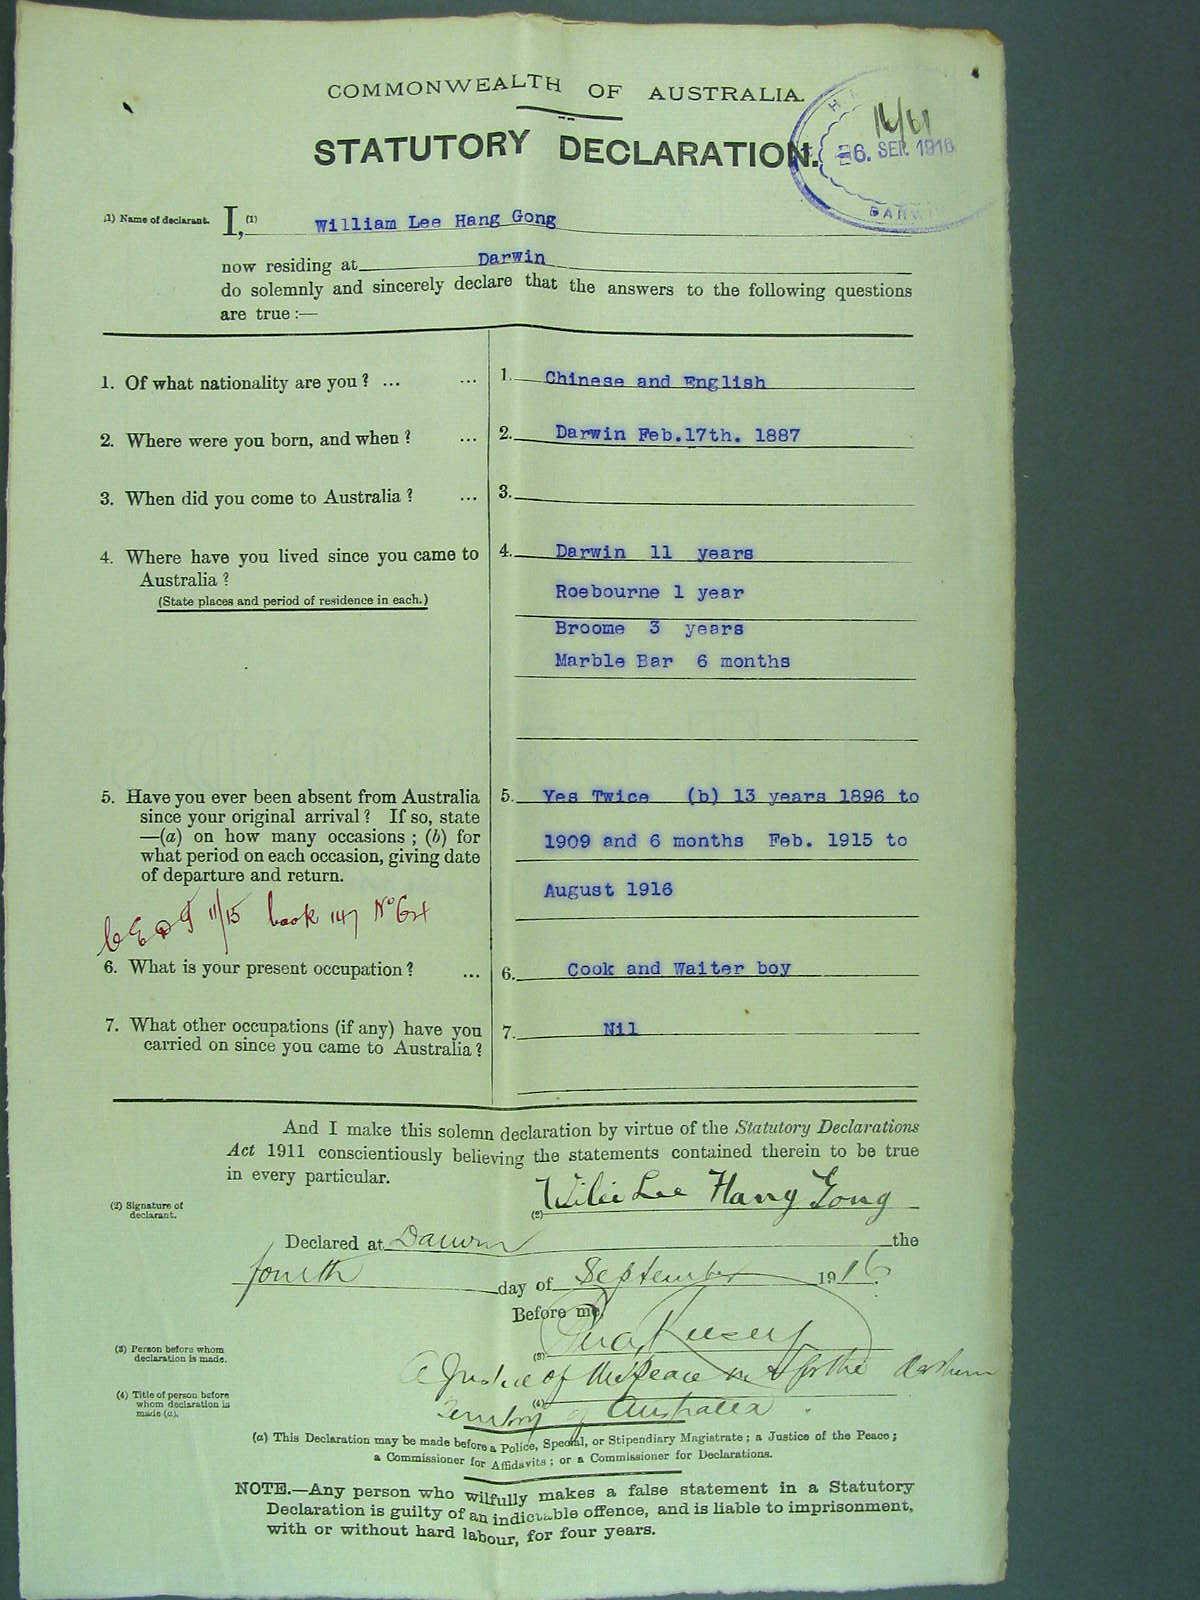 COMMONWEALTH OF AUSTRALIA.
STATUTORY DECLARATION.
16/61
6. SEP. 1916
DARWIN
(1) Name of declarant. I, (1) William Lee Hang Gong
now residing at Darwin
do solemnly and sincerely declare that the answers to the following questions
are true :—
1. Of what nationality are you ? ... ... 1. Chinese and English
2. Where were you born, and when ? ... 2. Darwin Feb.17th. 1887
3. When did you come to Australia ? ... 3.
4. Where have you lived since you came to 4. Darwin 11 years
Australia ?
(State places and period of residence in each.)
Roebourne 1 year
Broome 3 years
Marble Bar 6 months
5. Have you ever been absent from Australia 5. Yes Twice (b) 13 years 1896 to
since your original arrival ? If so, state
—(a) on how many occasions ; (b) for 1909 and 6 months Feb. 1915 to
what period on each occasion, giving date
of departure and return. August 1916
C E D T 11/15 book 147 No 64
6. What is your present occupation ? ... 6. Cook and Waiter boy
7. What other occupations (if any) have you 7. Nil
carried on since you came to Australia ?
And I make this solemn declaration by virtue of the Statutory Declarations
Act 1911 conscientiously believing the statements contained therein to be true
in every particular.
(2) Signature of
declarant.
(2) Willie Lee Hang Gong
Declared at Darwin the
fourth day of September 1916
Before me,
(3) Person before whom
declaration is made.
(3)
A Justice of the Peace in & for the Northern
(4) Title of person before
whom declaration is
made (a).
(4) Territory of Australia.
(a) This Declaration may be made before a Police, Special, or Stipendiary Magistrate ; a Justice of the Peace ;
a Commissioner for Affidavits ; or a Commissioner for Declarations.
NOTE.—Any person who wilfully makes a false statement in a Statutory
Declaration is guilty of an indictable offence, and is liable to imprisonment,
with or without hard labour, for four years.